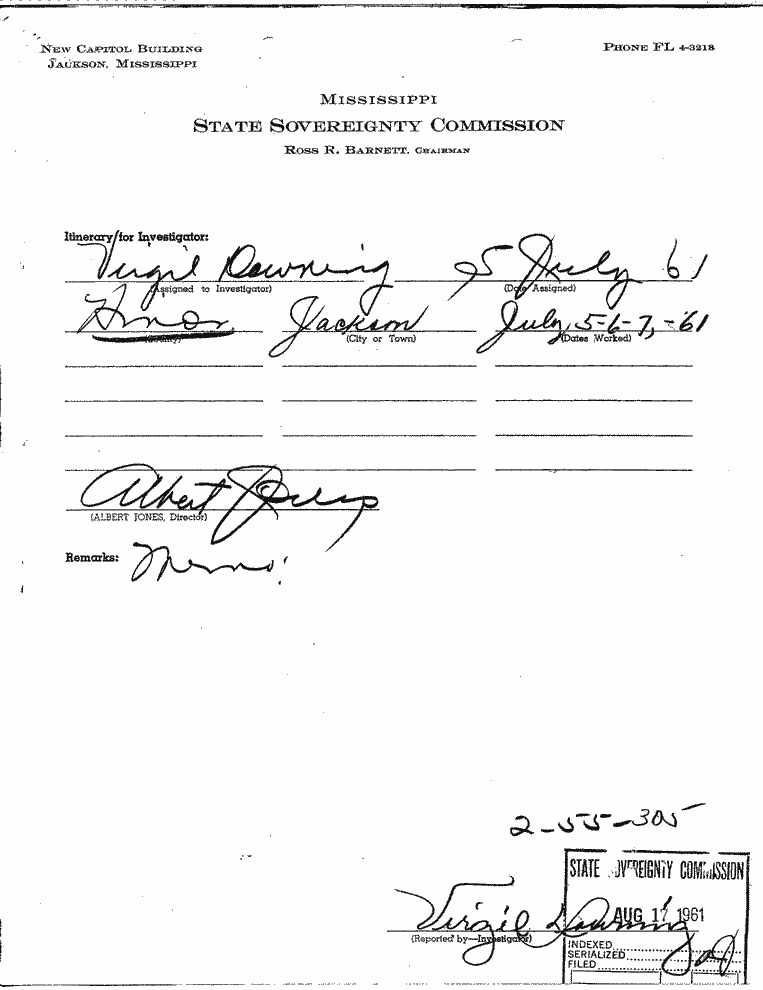 NEW CAPITOL BUILDING
JACKSON, MISSISSIPPI
PHONE FL 4-3218
MISSISSIPPI
STATE SOVEREIGNTY COMMISSION
ROSS R. BARNETT, CHAIRMAN
Itinerary/for Investigator:
Virgil Downing 5 July 61
(Assigned to Investigator) (Date Assigned)
Hinds Jackson July, 5-6-7, -61
(County) (City or Town) (Dates Worked)
Albert Jones
(ALBERT JONES, Director)
Remarks: Memo.
2-55-305
STATE SOVEREIGNTY COMMISSION
Virgil Downing AUG 17 1961
(Reported by—Investigator)
INDEXED
SERIALIZED
FILED